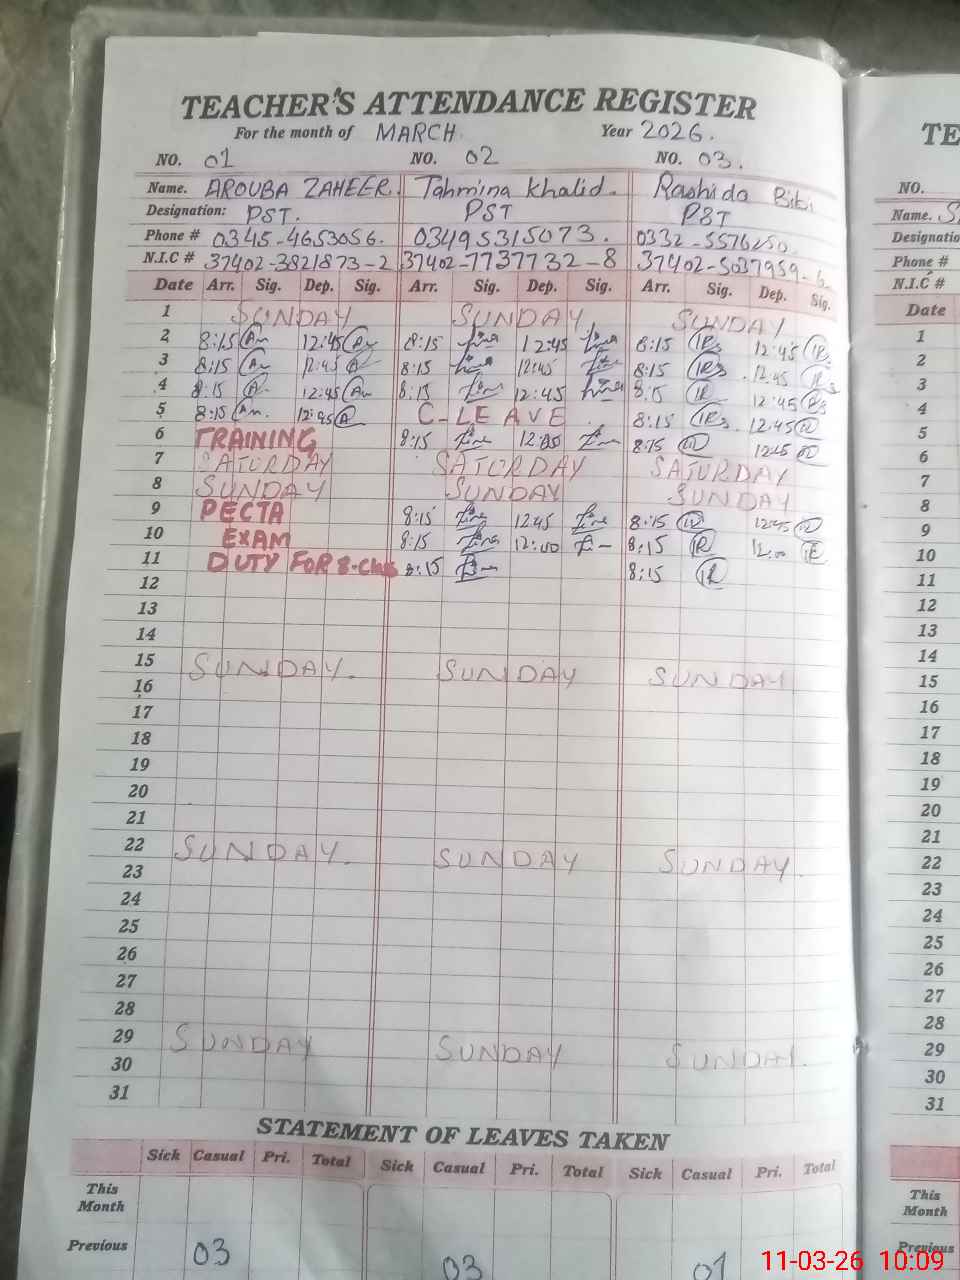 TEACHER'S ATTENDANCE REGISTER
For the month of MARCH. Year 2026.
NO. 01 NO. 02 NO. 03.
Name. AROUBA ZAHEER. Tahmina Khalid. Rashida Bibi
Designation: PST. PST PST
Phone # 0345-4653056. 03495315073. 0332-5576250.
N.I.C # 37402-3821873-2 37402-7737732-8 37402-5037959-6
Date Arr. Sig. Dep. Sig. Arr. Sig. Dep. Sig. Arr. Sig. Dep. Sig.
1 SUNDAY SUNDAY SUNDAY
2 8:15 12:45 8:15 12:45 8:15 12:45
3 8:15 12:45 8:15 12:45 8:15 12:45
4 8:15 12:45 8:15 12:45 8:15 12:45
5 8:15 12:45 C-LEAVE 8:15 12:45
6 TRAINING 8:15 8:15 12:45
7 SATURDAY SATURDAY SATURDAY
8 SUNDAY SUNDAY SUNDAY
9 PECTA 8:15 12:45 8:15 12:45
10 EXAM 8:15 12:00 8:15 12:00
11 DUTY FOR 8-Class 8:15 8:15
12
13
14
15 SUNDAY. SUNDAY SUNDAY
16
17
18
19
20
21
22 SUNDAY. SUNDAY SUNDAY.
23
24
25
26
27
28
29 SUNDAY SUNDAY SUNDAY.
30
31
STATEMENT OF LEAVES TAKEN
Sick Casual Pri. Total Sick Casual Pri. Total Sick Casual Pri. Total
This Month
Previous 03 03 01
TE
NO.
Name.
Designatio
Phone #
N.I.C #
Date
1
2
3
4
5
6
7
8
9
10
11
12
13
14
15
16
17
18
19
20
21
22
23
24
25
26
27
28
29
30
31
This Month
Previous
11-03-26 10:09